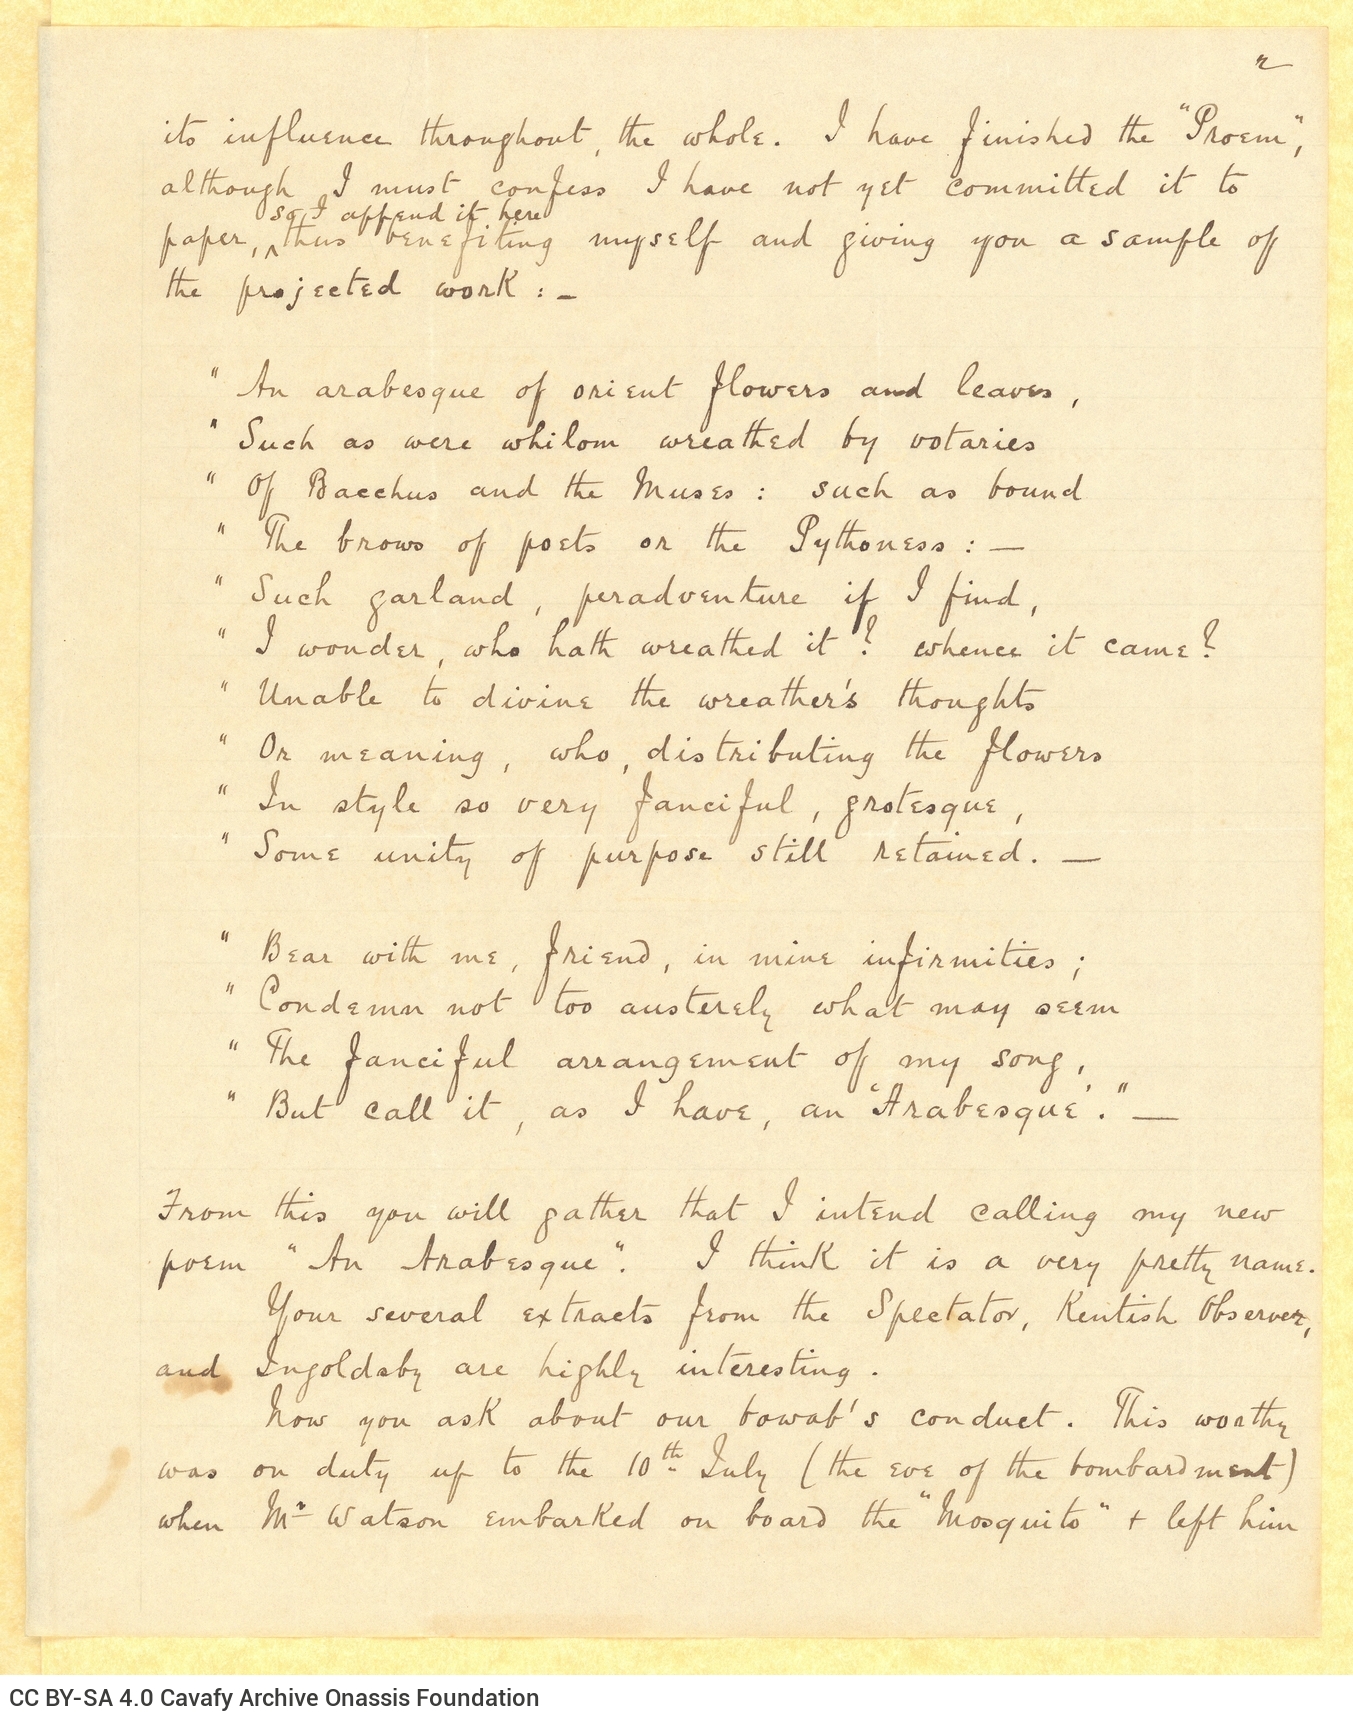 2
its influence throughout, the whole. I have finished the "Proem",
although I must confess I have not yet committed it to
so I append it here
paper, ‸ thus benefiting myself and giving you a sample of
the projected work : —
" An arabesque of orient flowers and leaves,
" Such as were whilom wreathed by votaries
" Of Bacchus and the Muses : such as bound
" The brows of poets or the Pythoness : —
" Such garland, peradventure if I find,
" I wonder, who hath wreathed it ? whence it came ?
" Unable to divine the wreather's thoughts
" Or meaning, who, distributing the flowers
" In style so very fanciful, grotesque,
" Some unity of purpose still retained. —
" Bear with me, friend, in mine infirmities ;
" Condemn not too austerely what may seem
" The fanciful arrangement of my song,
" But call it, as I have, an 'Arabesque'." —
From this you will gather that I intend calling my new
poem "An Arabesque". I think it is a very pretty name.
Your several extracts from the Spectator, Kentish Observer,
and Ingoldsby are highly interesting.
Now you ask about our bowab's conduct. This worthy
was on duty up to the 10th July (the eve of the bombardment)
when Mr Watson embarked on board the "Mosquito" + left him
CC BY-SA 4.0 Cavafy Archive Onassis Foundation